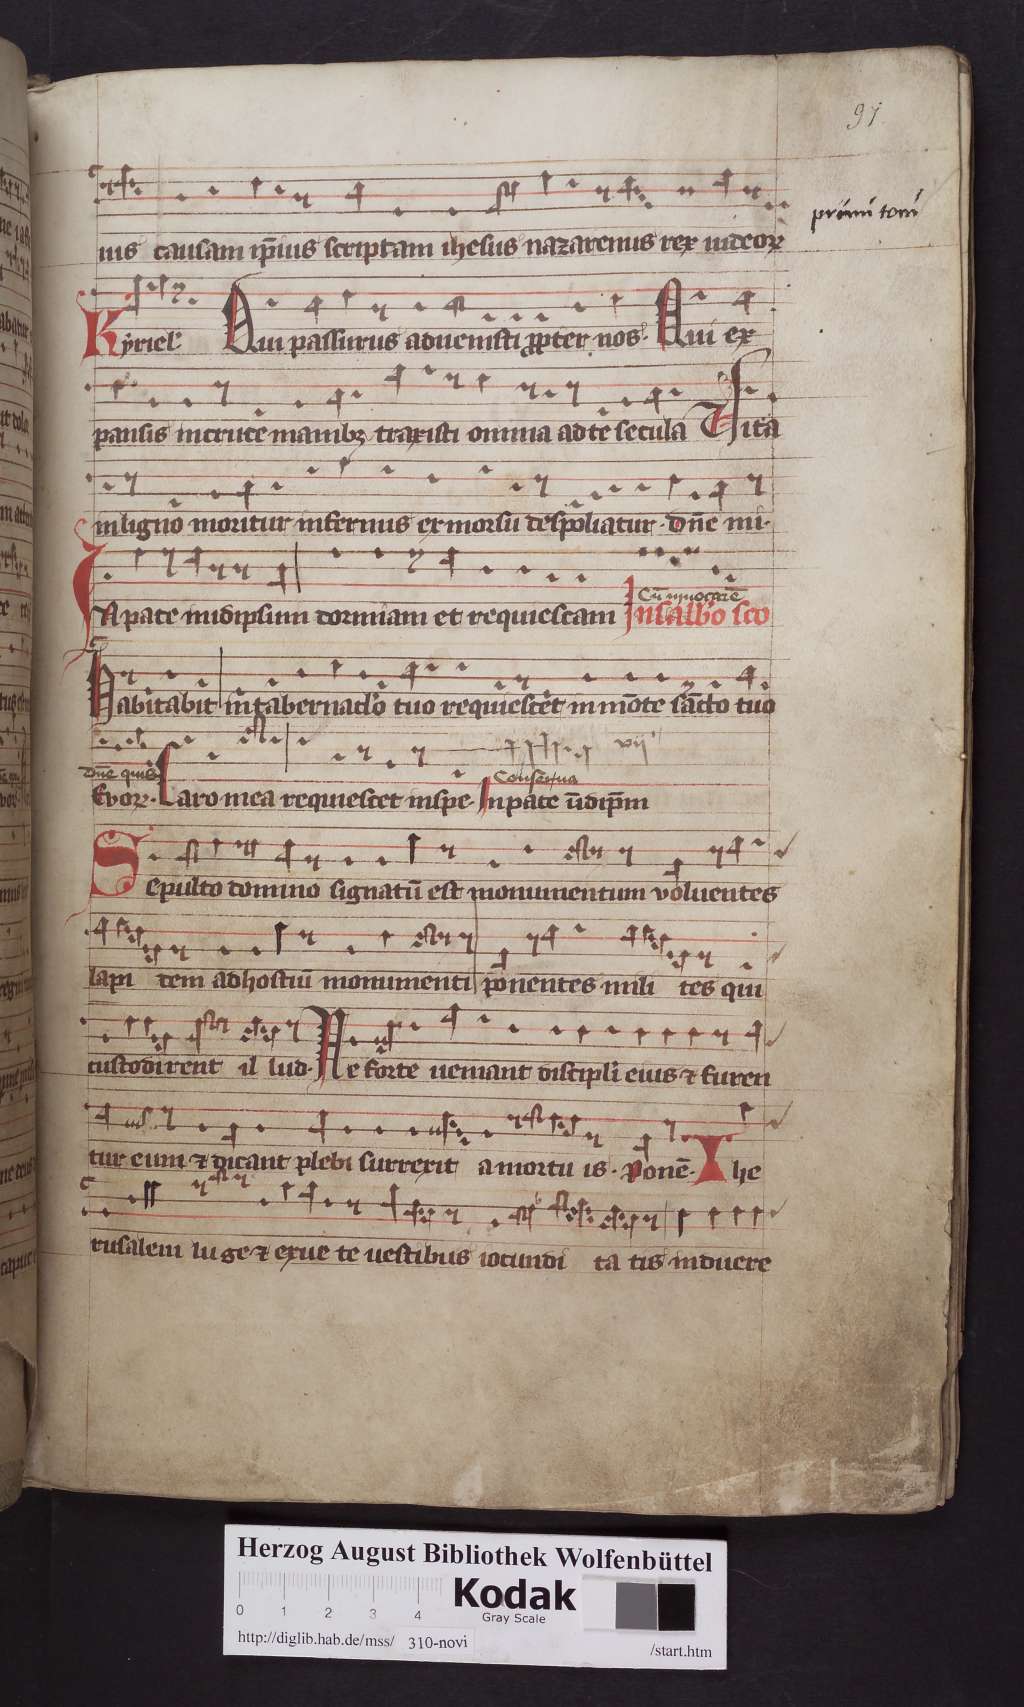 91
ius causam ip̄ius scriptam ihesus nazarenus rex iudeoꝝ
primi toni
Kyriel' Qui passurus aduenisti ꝓpter nos· Qui ex
pansis in cruce manibꝫ traxisti omnia ad te secula Vita
in ligno moritur infernus ex morsu despoliatur· dn̄e mi·
In pace in idipsum dormiam et requiescam In sabb'o sc̄o
Habitabit in tabernac'lo tuo requiescet in mōte sācto tuo
dn̄e quis
Evoꝝ· Caro mea requiescet in spe· In pace ūdip̄m
Conserua
vij
Sepulto domino signatū est monumentum voluentes
lapi dem ad hostiū monumenti ponentes mili tes qui
custodirent il lud· Ne forte ueniant discipl'i eius ⁊ furen
tur eum ⁊ dicant plebi surrexit a mortu is· Ponē· Ihe
rusalem lu ge ⁊ exue te uestibus iocundi ta tis induere
Herzog August Bibliothek Wolfenbüttel
0 1 2 3 4
Kodak
Gray Scale
http://diglib.hab.de/mss/ 310-novi /start.htm